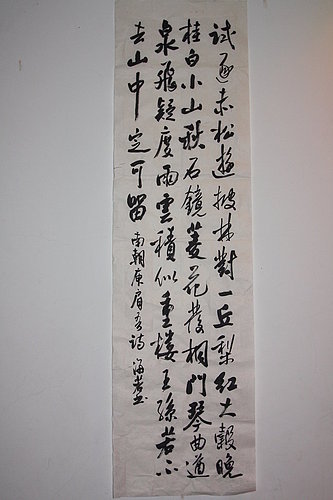 試逐赤松遊披林對一丘梨紅大穀晚
桂白小山秋石鏡菱花發桐門琴曲遒
泉飛疑度雨雲積似重楼王孫若不
去山中定可留
南朝庾肩吾詩